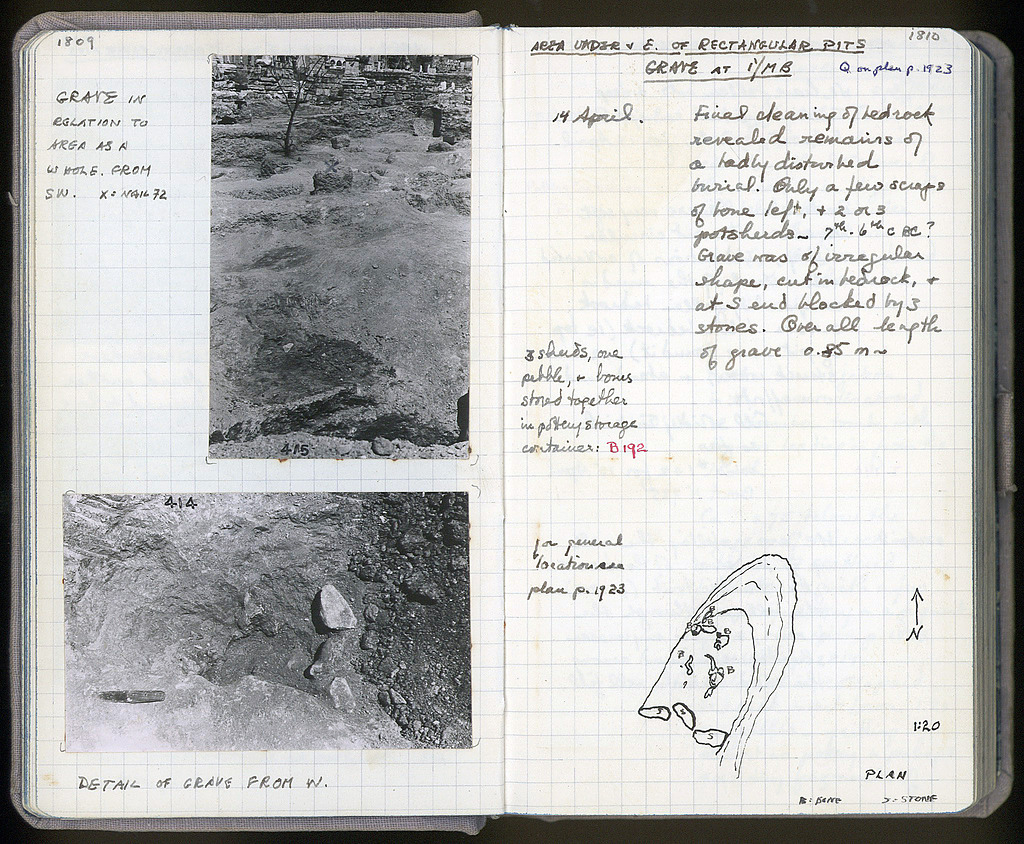 1809
GRAVE IN
RELATION TO
AREA AS A
WHOLE. FROM
SW. X = NAIL 72
415
414
DETAIL OF GRAVE FROM W.
1810
AREA UNDER & E. OF RECTANGULAR PITS
GRAVE AT I/MB
Q on plan p. 1923
14 April.
Final cleaning of bedrock
revealed remains of
a badly disturbed
burial. Only a few scraps
of bone left, + 2 or 3
potsherds ~ 7th-6th C BC?
Grave was of irregular
shape, cut in bedrock, +
at S end blocked by 3
stones. Over all length
of grave 0.85 m ~
3 sherds, one
pebble, + bones
stored together
in pottery storage
container: B 192
for general
location see
plan p. 1923
B
B
B
B
?
S
S
S
N
1:20
PLAN
B = BONE S = STONE